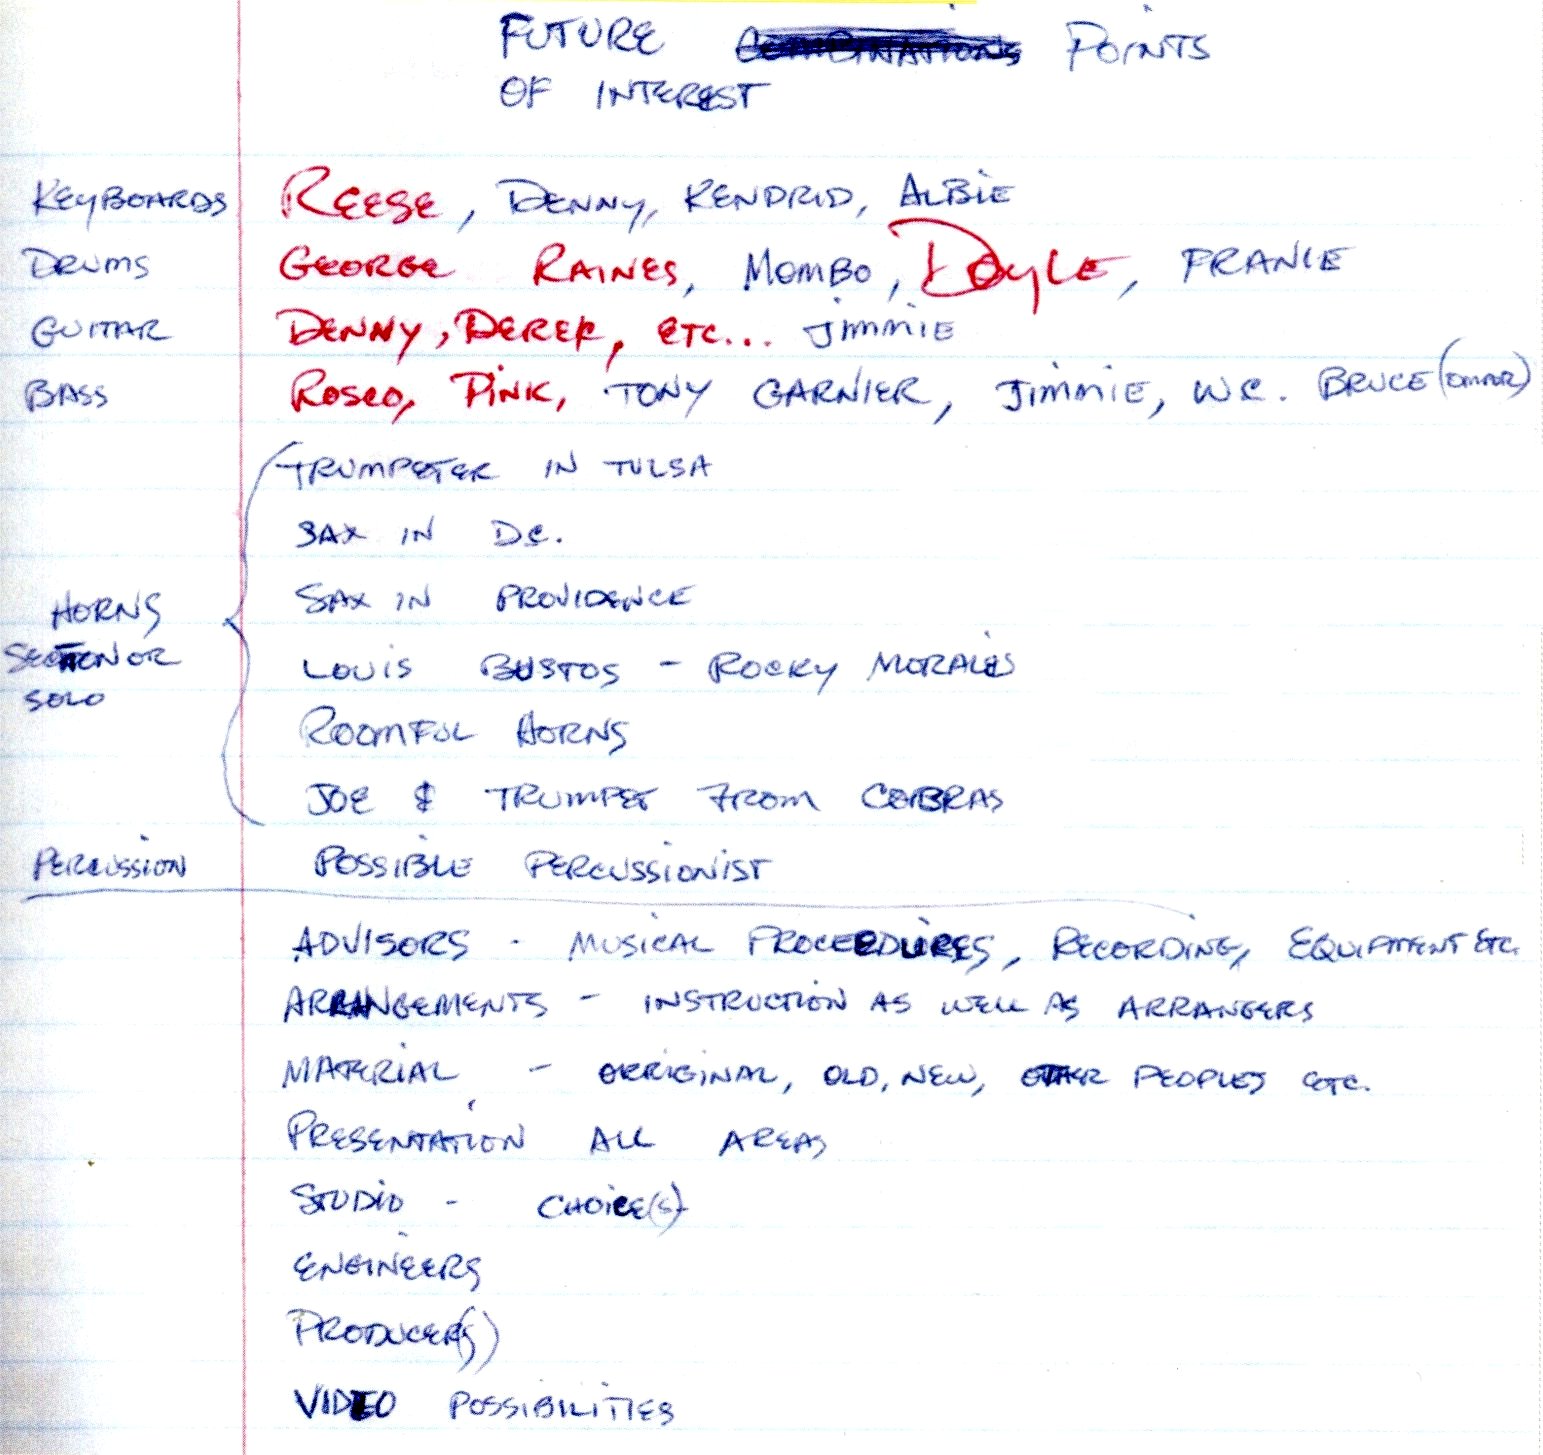 FUTURE COMBINATIONS POINTS
OF INTEREST
KEYBOARDS REESE, DENNY, KENDRID, ALBIE
DRUMS GEORGE RAINES, MOMBO, DOYLE, FRANIE
GUITAR DENNY, DEREK, ETC... JIMMIE
BASS ROSCO, PINK, TONY GARNIER, JIMMIE, W.C. BRUCE
TRUMPETER IN TULSA
SAX IN DC.
SAX IN PROVIDENCE
HORNS
SECTION OR
SOLO
LOUIS BUSTOS - ROCKY MORALES
ROOMFUL HORNS
JOE & TRUMPET FROM COBRAS
PERCUSSION POSSIBLE PERCUSSIONIST
ADVISORS - MUSICAL PROCEEDURES, RECORDING, EQUIPMENT ETC.
ARRANGEMENTS - INSTRUCTION AS WELL AS ARRANGERS
MATERIAL - ORRIGINAL, OLD, NEW, OTHER PEOPLES ETC.
PRESENTATION ALL AREAS
STUDIO - CHOICE(S)
ENGINEERS
PRODUCER(S)
VIDEO POSSIBILITIES